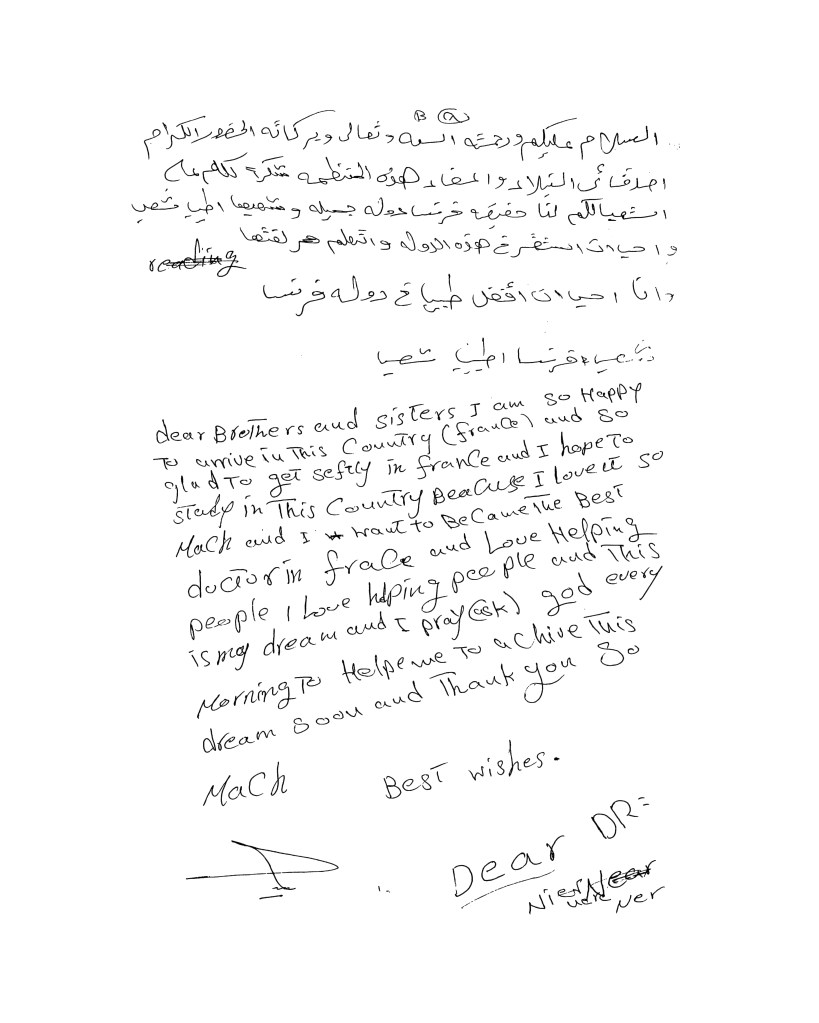 B a
السلام عليكم ورحمته الله وتعالى وبركاته الحضور الكرام
اصدقائي النبلاء واعضاء هذه المنظمه شكرا لكم على
استقبالكم لنا حقيقه فرنسا دوله جميله وشعبها اطيب شعب
و احب ان استقر في هذه الدوله و اتعلم لغتها
reading
وانا احب ان أفضل طبيب في دوله فرنسا
فرنسا اطيب
dear Brothers and sisters I am so Happy
To arrive in This Country (france) and so
glad To get seftly in france and I hope To
study in This Country Beacuse I love it so
Mach and I want to BeCame The Best
doctor in fraCe and Love Helping
people I Love hlping peeple and This
is my dream and I pray (ask) god every
Morning To Helpe me To achive This
dream soon and Thank you So
MaCh Best wishes.
Dear DR=
Nier Near
were Ner